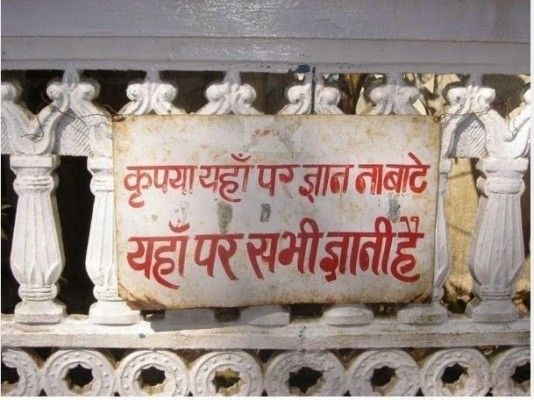 कृपया यहाँ पर ज्ञान ना बाटे
यहाँ पर सभी ज्ञानी है